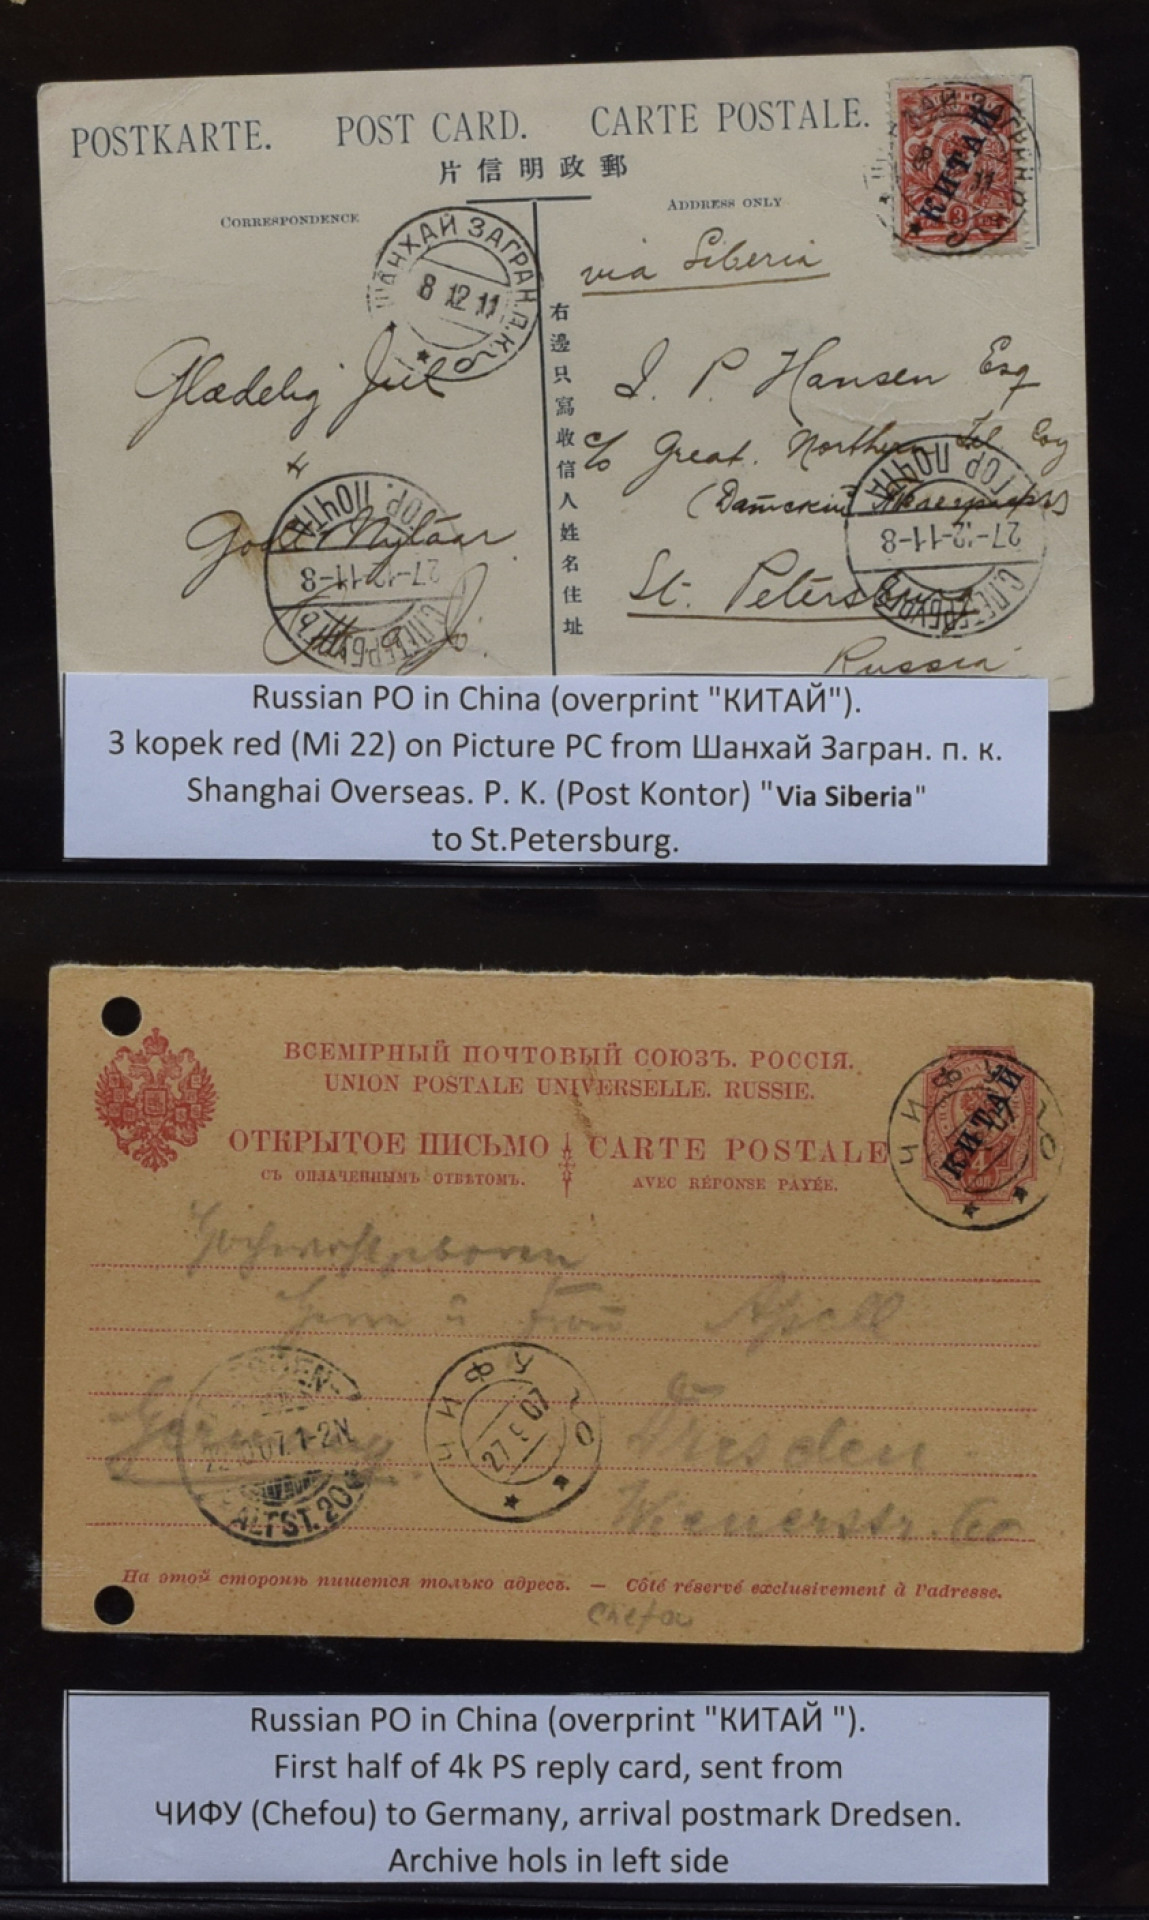 POSTKARTE. POST CARD. CARTE POSTALE.
片信明政郵
CORRESPONDENCE
ADDRESS ONLY
КИТАЙ
3
ШАНХАЙ ЗАГРАН.П.К.
8 12 11
via Siberia
右邊只寫收信人姓名住址
Glædelig Jul
+
Godt Nytaar
J. P. Hansen Esq
c/o Great Northern Tel Coy
(Датский Телеграфъ)
St. Petersburg
Russia
С.ПЕТЕРБУРГЪ
27-12-11-8
ГОР. ПОЧТА
С.ПЕТЕРБУРГЪ
27-12-11-8
ГОР. ПОЧТА
Russian PO in China (overprint "КИТАЙ").
3 kopek red (Mi 22) on Picture PC from Шанхай Загран. п. к.
Shanghai Overseas. P. K. (Post Kontor) "Via Siberia"
to St.Petersburg.
ВСЕМІРНЫЙ ПОЧТОВЫЙ СОЮЗЪ. РОССІЯ.
UNION POSTALE UNIVERSELLE. RUSSIE.
ОТКРЫТОЕ ПИСЬМО CARTE POSTALE
СЪ ОПЛАЧЕННЫМЪ ОТВѢТОМЪ. AVEC RÉPONSE PAYÉE.
КИТАЙ
4
КОП
ЧИФУ
Hochwohlgeboren
Herrn u Frau Apell
Germany
Dresden
Wienerstr. 60
ALTST.
1-2N
ЧИФУ
27 9 07
На этой сторонѣ пишется только адресъ. — Côté réservé exclusivement à l'adresse.
Chefou
Russian PO in China (overprint "КИТАЙ ").
First half of 4k PS reply card, sent from
ЧИФУ (Chefou) to Germany, arrival postmark Dredsen.
Archive hols in left side